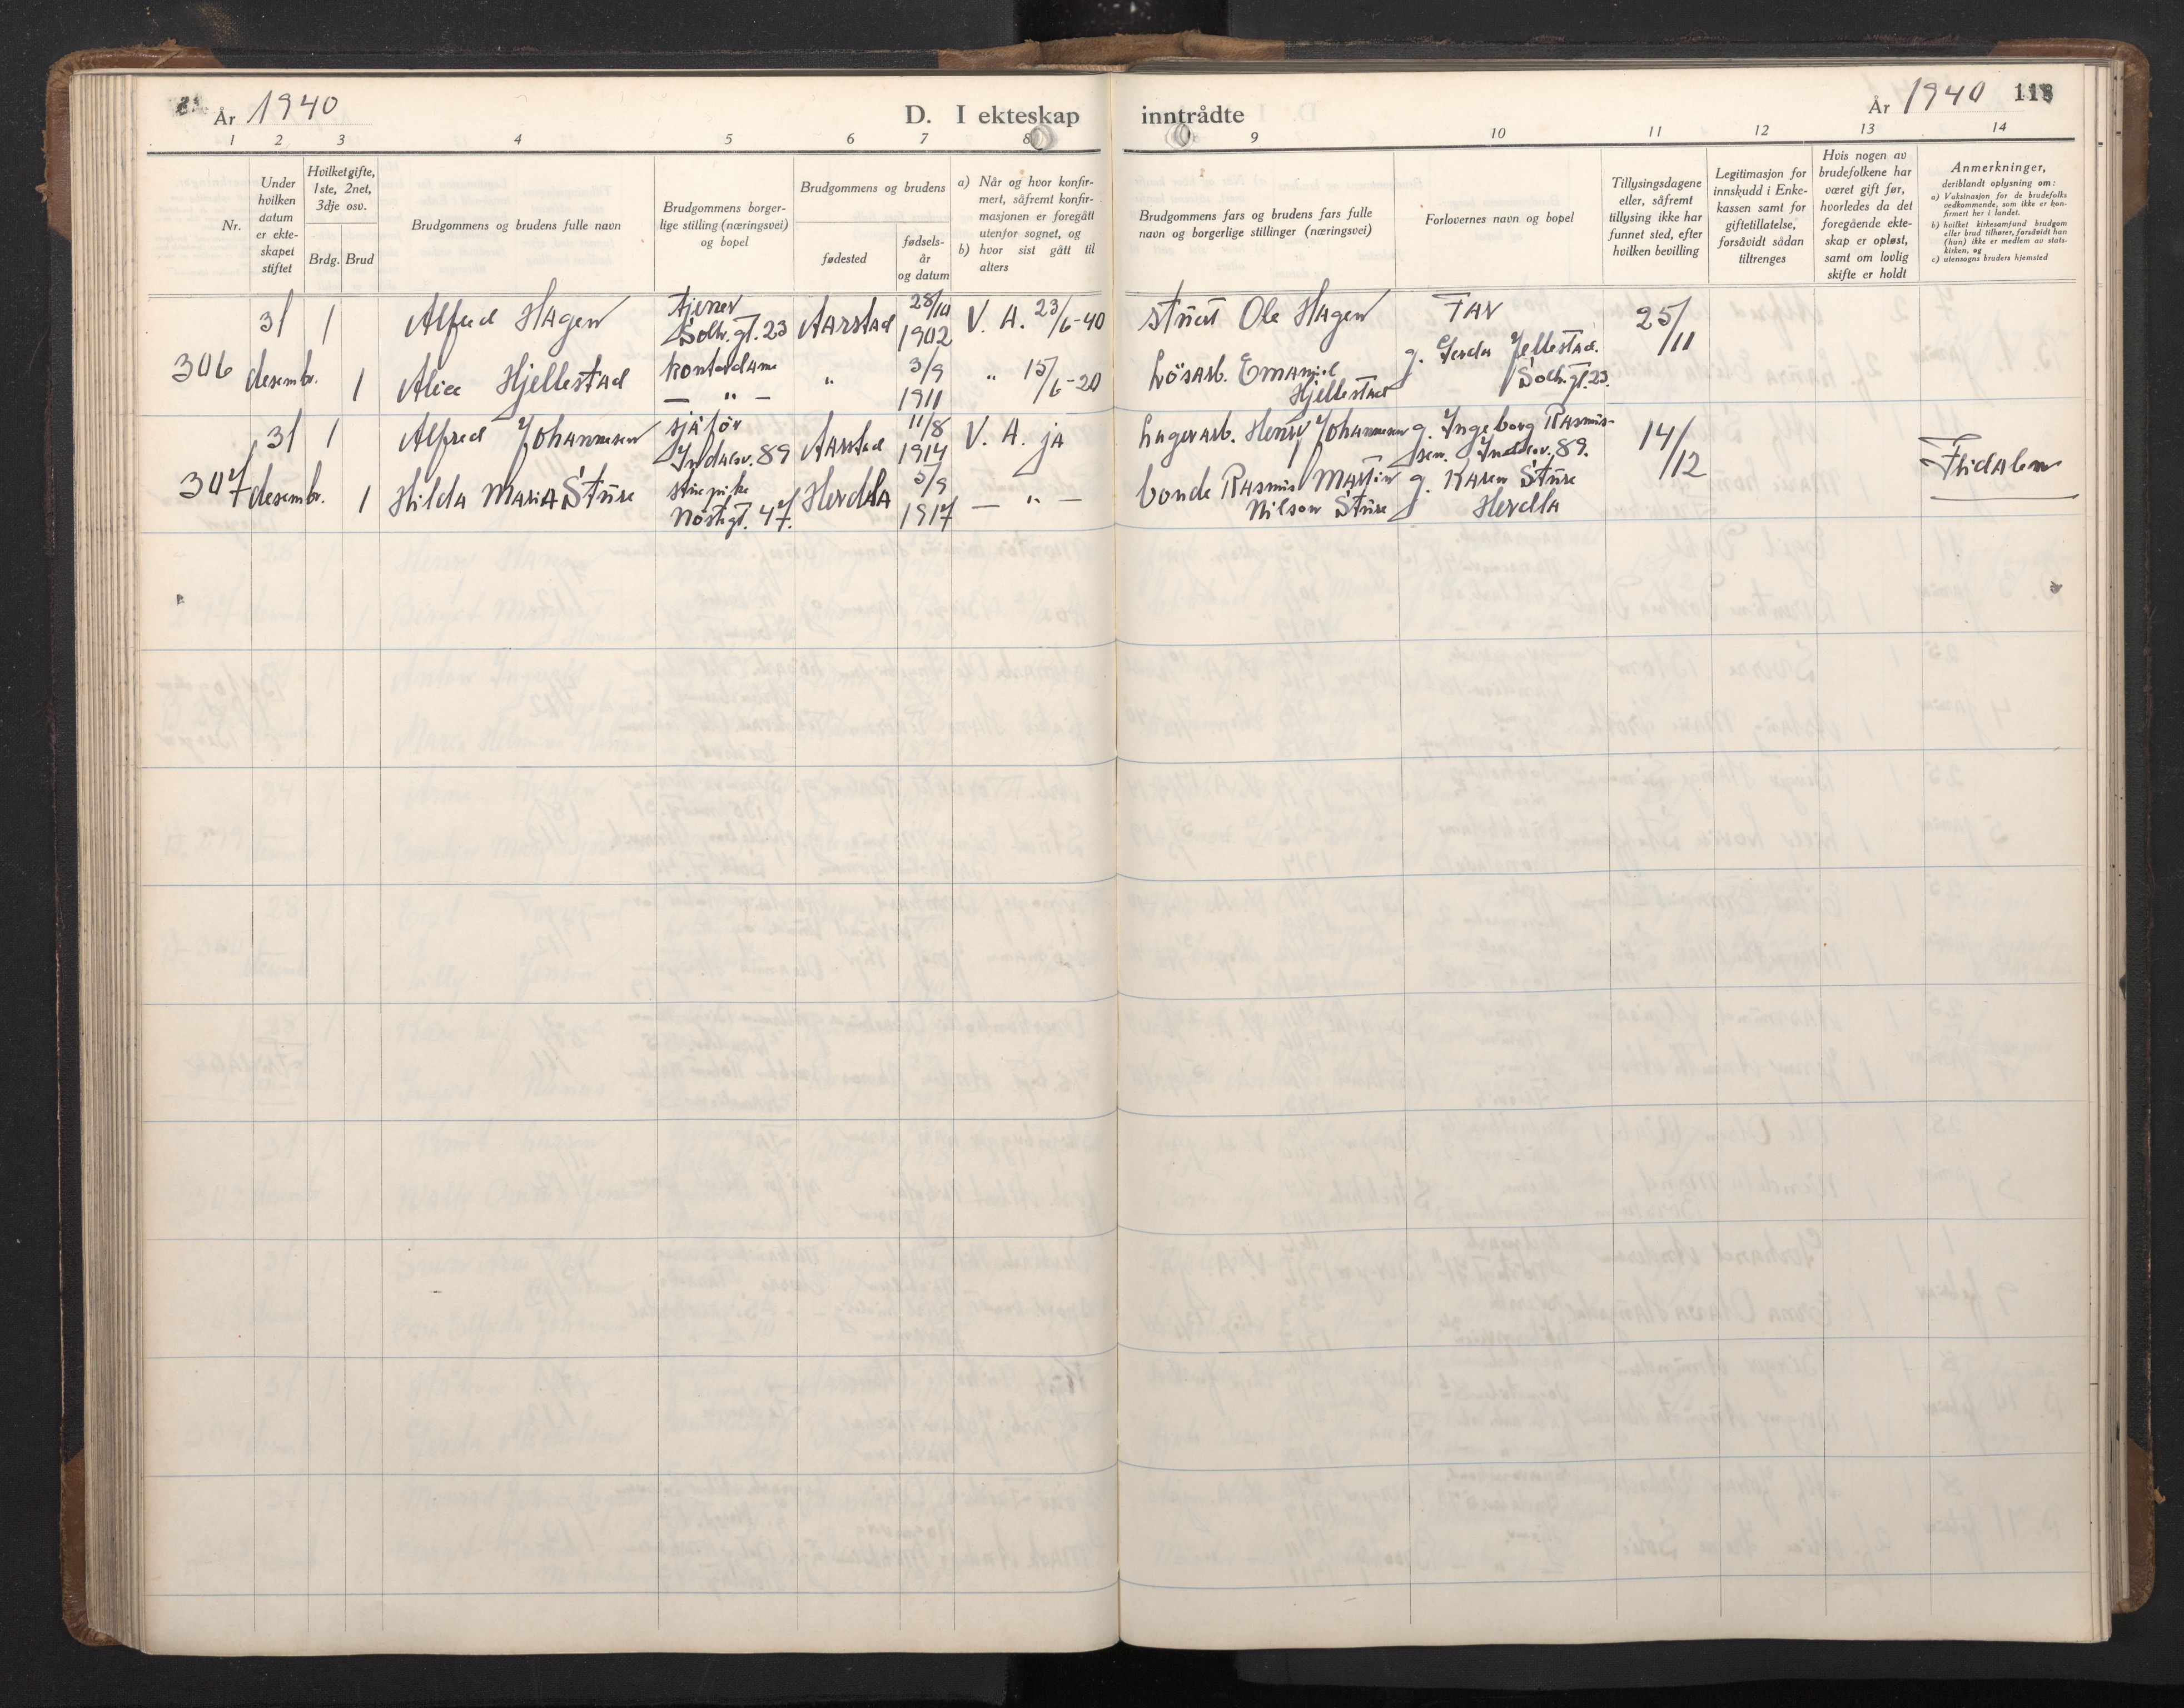 År 1940
D. I ekteskap inntrådte
År 1940 118
1 2 3 4 5 6 7 8 9 10 11 12 13 14
Nr.
Under hvilken datum er ekteskapet stiftet
Hvilket gifte, 1ste, 2net, 3dje osv.
Brdg. Brud
Brudgommens og brudens fulle navn
Brudgommens borgerlige stilling (næringsvei) og bopel
Brudgommens og brudens
fødested
fødselsår og datum
a) Når og hvor konfirmert, såfremt konfirmasjonen er foregått utenfor sognet, og
b) hvor sist gått til alters
Brudgommens fars og brudens fars fulle navn og borgerlige stillinger (næringsvei)
Forlovernes navn og bopel
Tillysingsdagene eller, såfremt tillysing ikke har funnet sted, efter hvilken bevilling
Legitimasjon for innskudd i Enkekassen samt for giftetillatelse, forsåvidt sådan tiltrenges
Hvis nogen av brudefolkene har været gift før, hvorledes da det foregående ekteskap er opløst, samt om lovlig skifte er holdt
Anmerkninger,
deriblandt oplysning om:
a) Vaksinasjon for de brudefolks vedkommende, som ikke er konfirmert her i landet.
b) hvilket kirkesamfund brudgom eller brud tilhører, forsåvidt han (hun) ikke er medlem av statskirken, og
c) utensogns bruders hjemsted
31 1 Alfred Hagen tjener Solh.gt. 23 Aarstad 28/10 1902 V. A. 23/6-40 stuert Ole Hagen Far 25/11
306 desembr. 1 Alice Hjellestad kontordame — " — " 3/9 1911 " 15/6-20 løsarb. Emanuel Hjellestad g. Gerda Jellestad. Solh.gt. 23.
31 1 Alfred Johannesen sjåfør Indalsv. 89 Aarstad 11/8 1914 V. A. ja lagerarb. Henry Johannesen g. Ingeborg Rasmussen. Indalsv. 89. 14/12
307 desembr. 1 Hilda Maria Sture stuepike Nøstegt. 47. Herdla 5/9 1917 — " — bonde Rasmus Martin Nilsen Sture g. Karen Sture Herdla Fridalen